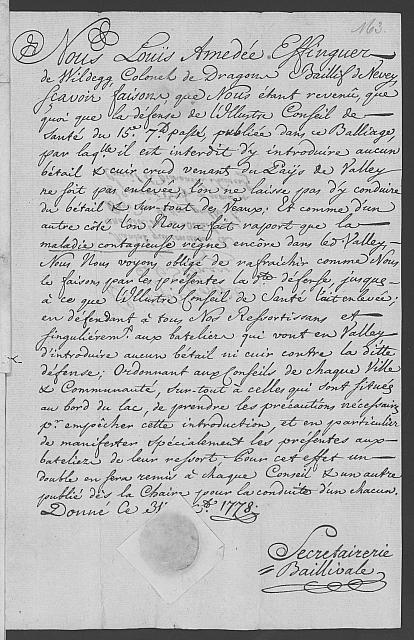 163.
Nous Louïs Amedée Effinguer
de Wildegg, Colonel de Dragons, Baillif de Vevey,
sçavoir faisons que Nous étant revenu, que
quoi que la défense de l'Illustre Conseil de
Santé du 15e 7b passé, publiée dans ce Balliage,
par laqlle il est interdit d'y introduire aucun
bétail & cuir crud venant du Païs de Valley
ne soit pas enlevée, l'on ne laisse pas d'y conduire
du bétail & sur-tout des Veaux; Et comme d'un
autre côté l'on Nous a fait raport que la
maladie contagieuse règne encòre dans le d. Valley,
Nous Nous voyons obligé de rafraichir comme Nous
le faisons par les présentes la dte défense, jusques
à ce que l'Illustre Conseil de Santé l'ait enlevée;
en défendant à tous Nos Ressortissans et
singulièremt. aux bateliers qui vont en Valley
d'introduire aucun bétail ni cuir contre la ditte
défense; Ordonnant aux Conseils de chaque Ville
& Communauté, sur-tout à celles qui sont situées
au bord du lac, de prendre les précautions nécessaires
pr. empêcher cette introduction, et en particulier
de manifester spécialement les présentes aux
bateliers de leur ressort. Pour cet effet un
double en sera remis à chaque Conseil & un autre
publié dès la Chaire pour la conduite d'un chacun.
Donné ce 31e 1778.
Secretairerie
Baillivale